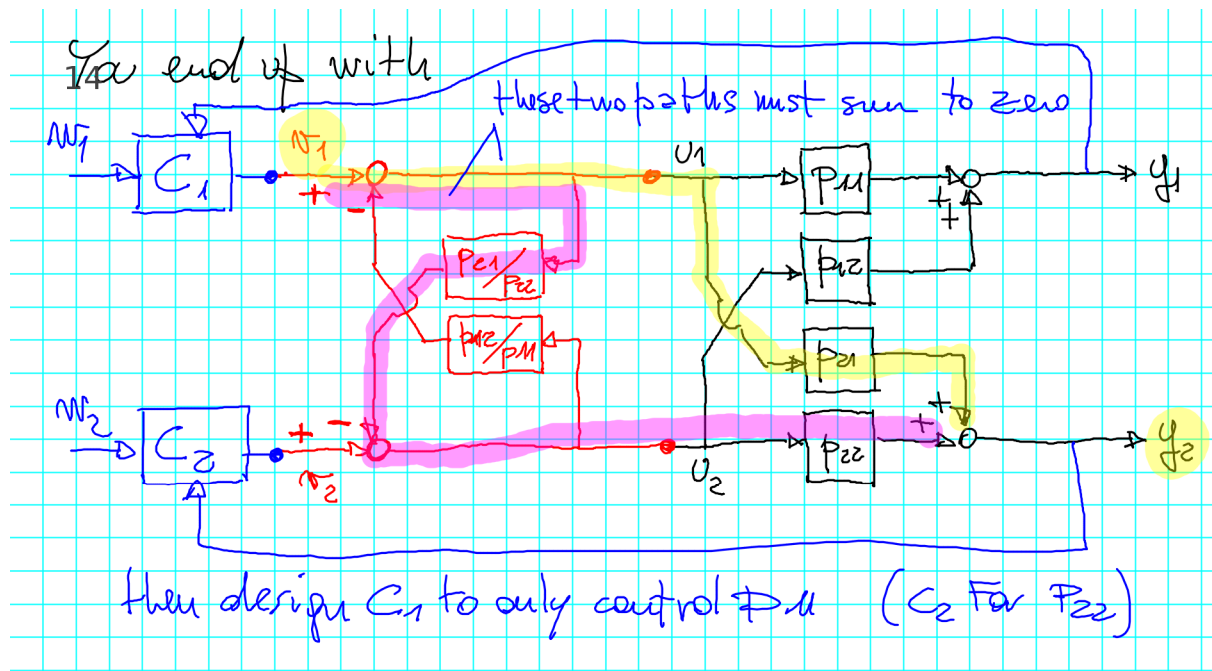 You end up with
14
these two paths must sum to zero
w1
C1
v1
+
-
U1
p11
+
+
y1
p21/p22
p12
p12/p11
p21
w2
C2
+
-
v2
U2
p22
+
+
y2
then design C1 to only control p11 (C2 For P22)